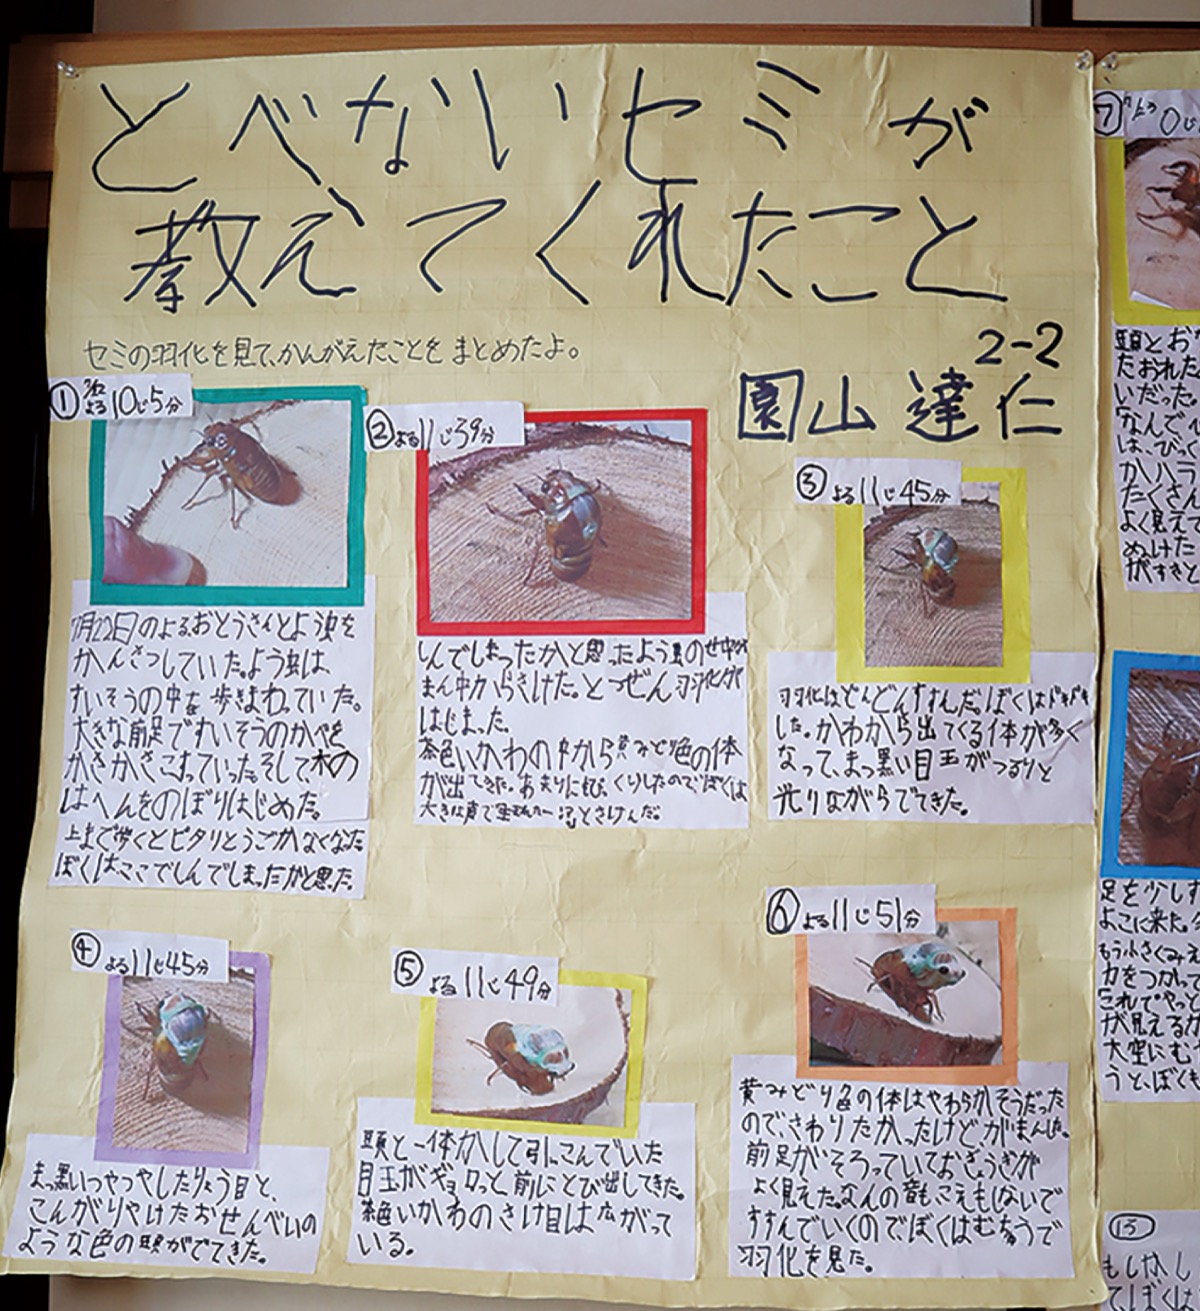 とべないセミが
教えてくれたこと
セミの羽化を見て、かんがえたことをまとめたよ。
2-2
園山達仁
① よる10じ5分
7月22日のよる、おとうさんとよう虫を
かんさつしていた。よう虫は
すいそうの中を歩きまわっていた。
大きな前足ですいそうのかべを
かさかさこすっていった。そして木の
はへんをのぼりはじめた。
上まで歩くとピタリとうごかなくなった。
ぼくは、ここでしんでしまったかと思った。
② よる11じ39分
しんでしまったかと思ったよう虫のせ中が
まん中からさけた。とつぜん羽化が
はじまった。
茶色いかわの中から黄みどり色の体
が出てきた。あまりにもびっくりしたのでぼくは
大きな声で とさけんだ。
③ よる11じ45分
羽化はどんどんすすんだ。ぼくはドキドキ
した。かわから出てくる体が多く
なって、まっ黒い目玉がつるりと
光りながらでてきた。
④ よる11じ45分
まっ黒いつやつやしたりょう目と、
こんがりやけたおせんべいの
ような色の頭がでてきた。
⑤ よる11じ49分
頭と一体かして引っこんでいた
目玉がギョロっと前にとび出してきた。
茶色いかわのさけ目は広がって
いる。
⑥ よる11じ51分
黄みどり色の体はやわらかそうだった
ので、さわりたかったけど、がまんした。
前足がそろっていておぎょうぎが
よく見えた。なんの音もこえもしないで
すすんでいくのでぼくはむちゅうで
羽化を見た。
⑦ 0じ
頭とお
たおれた
いだった。
「なんで
は、びっく
かハラ
たくさん
よく見えて
ぬけた
がすきと
足を少しず
よこに来た。
もう小さくみえ
力をつかって
「これでやっと
が見える
大空にむ
うと、ぼくも
⑬
もしかし
てぼくは